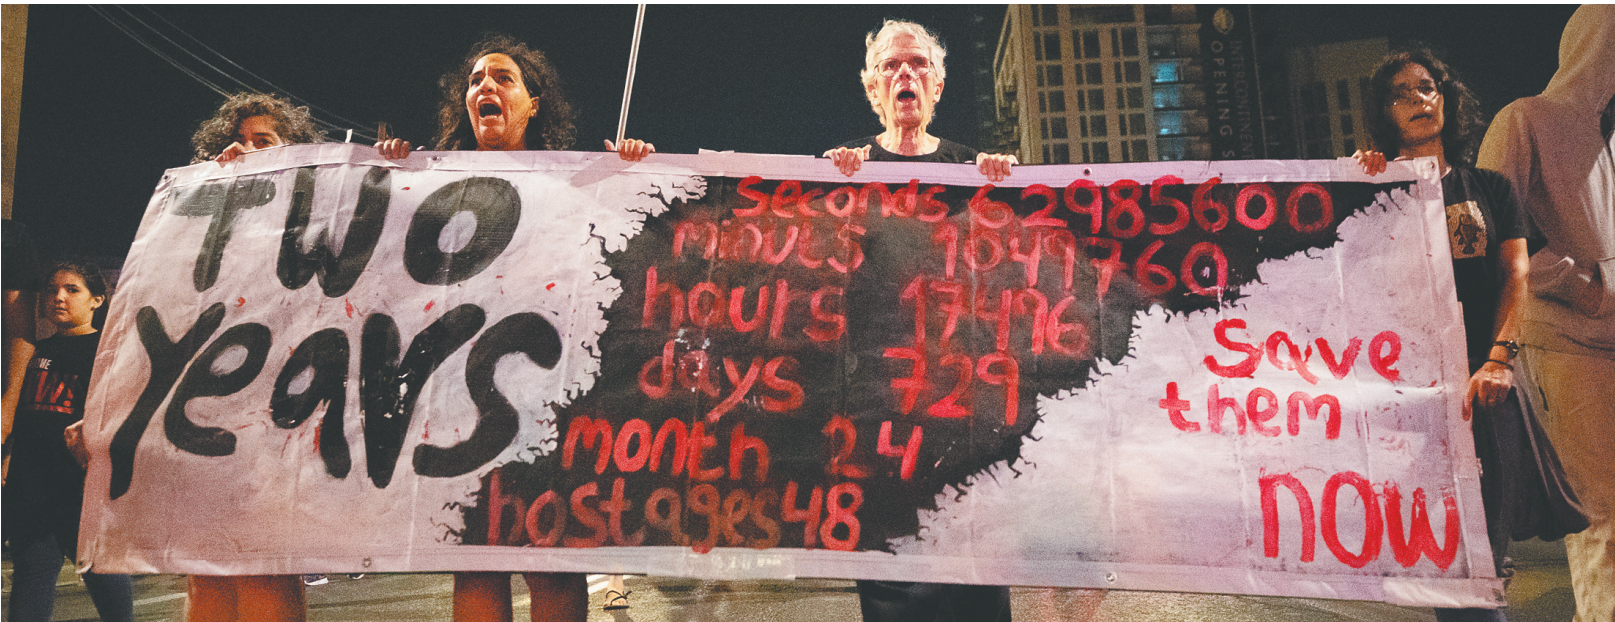 TWO
Years
seconds 62985600
minuts 1049760
hours 17496
days 729
month 24
hostages 48
save
them
now
OPENING S
INTERCONTINENT
THE